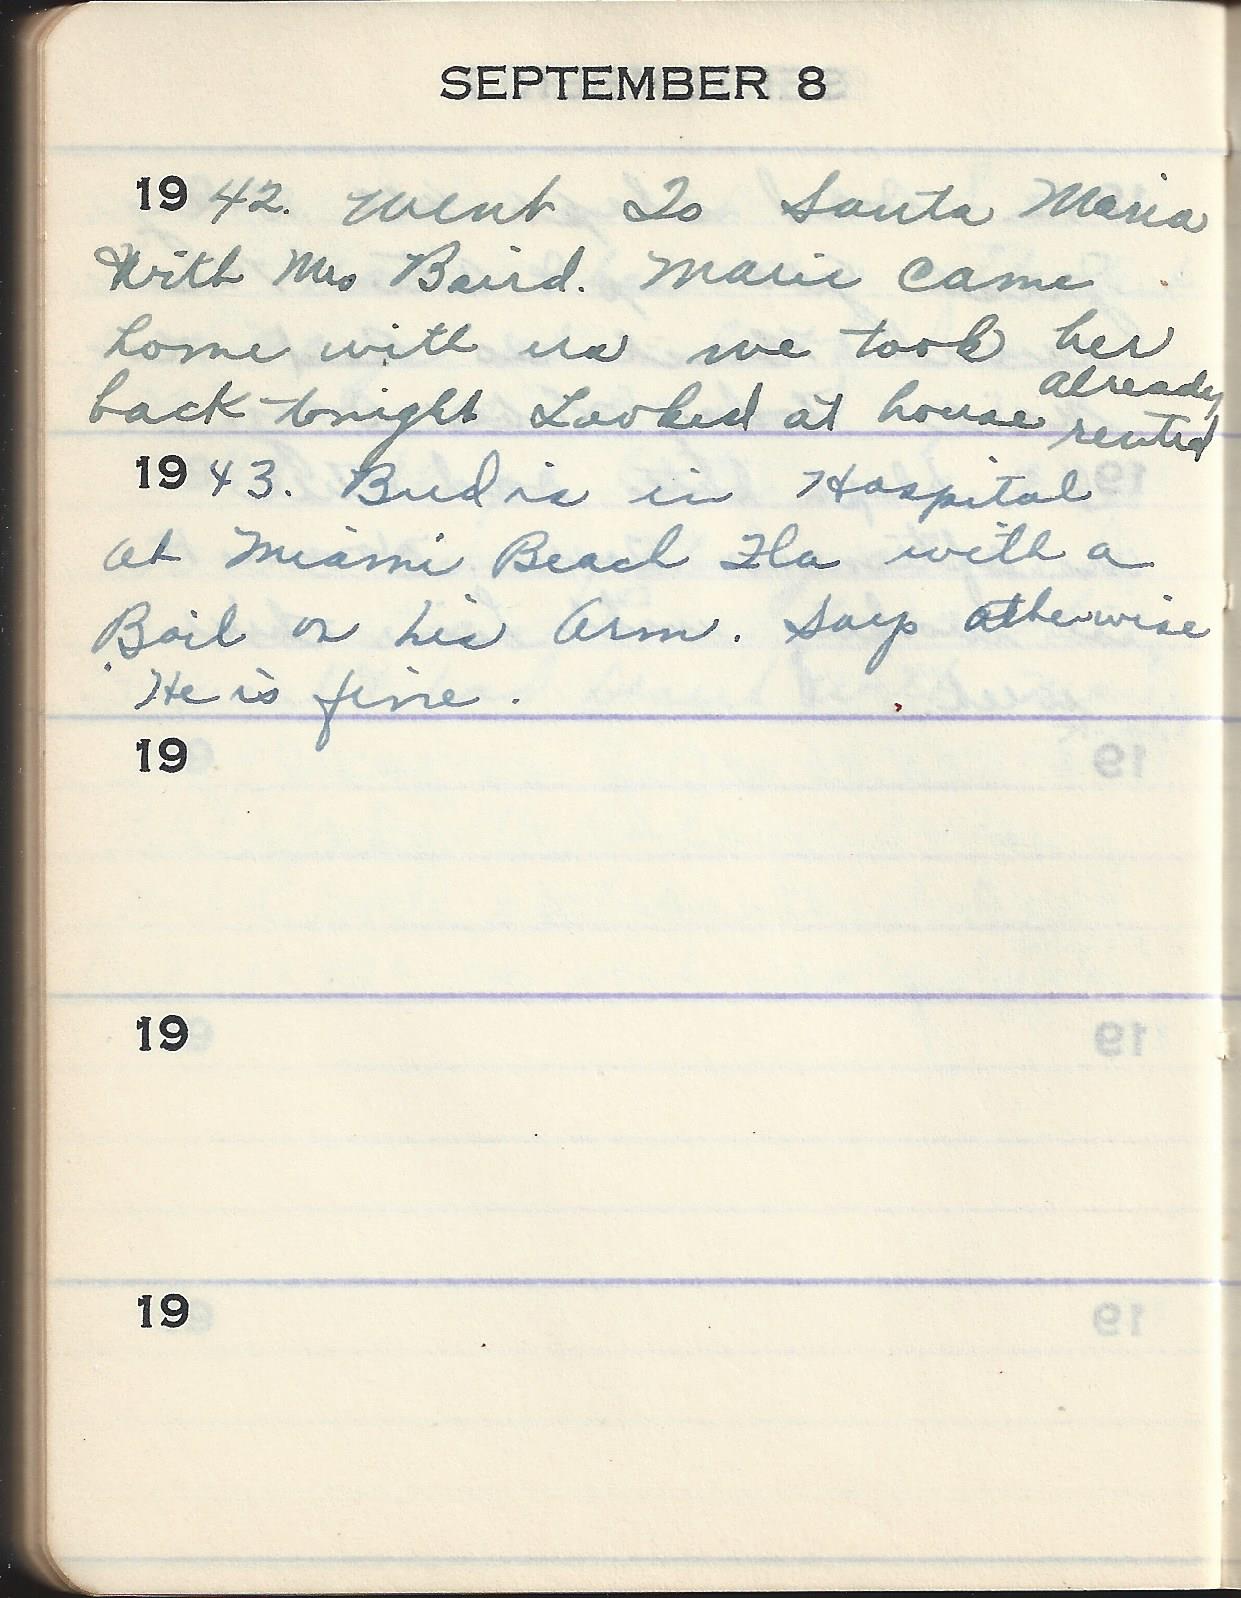 SEPTEMBER 8
19 42. Went To Santa Maria
With Mrs Baird. Marie came
home with us we took her
back tonight Looked at house already
rented
19 43. Bud is in Hospital
at Miami Beach Fla with a
Boil on his Arm. Says otherwise
He is fine.
19
19
19